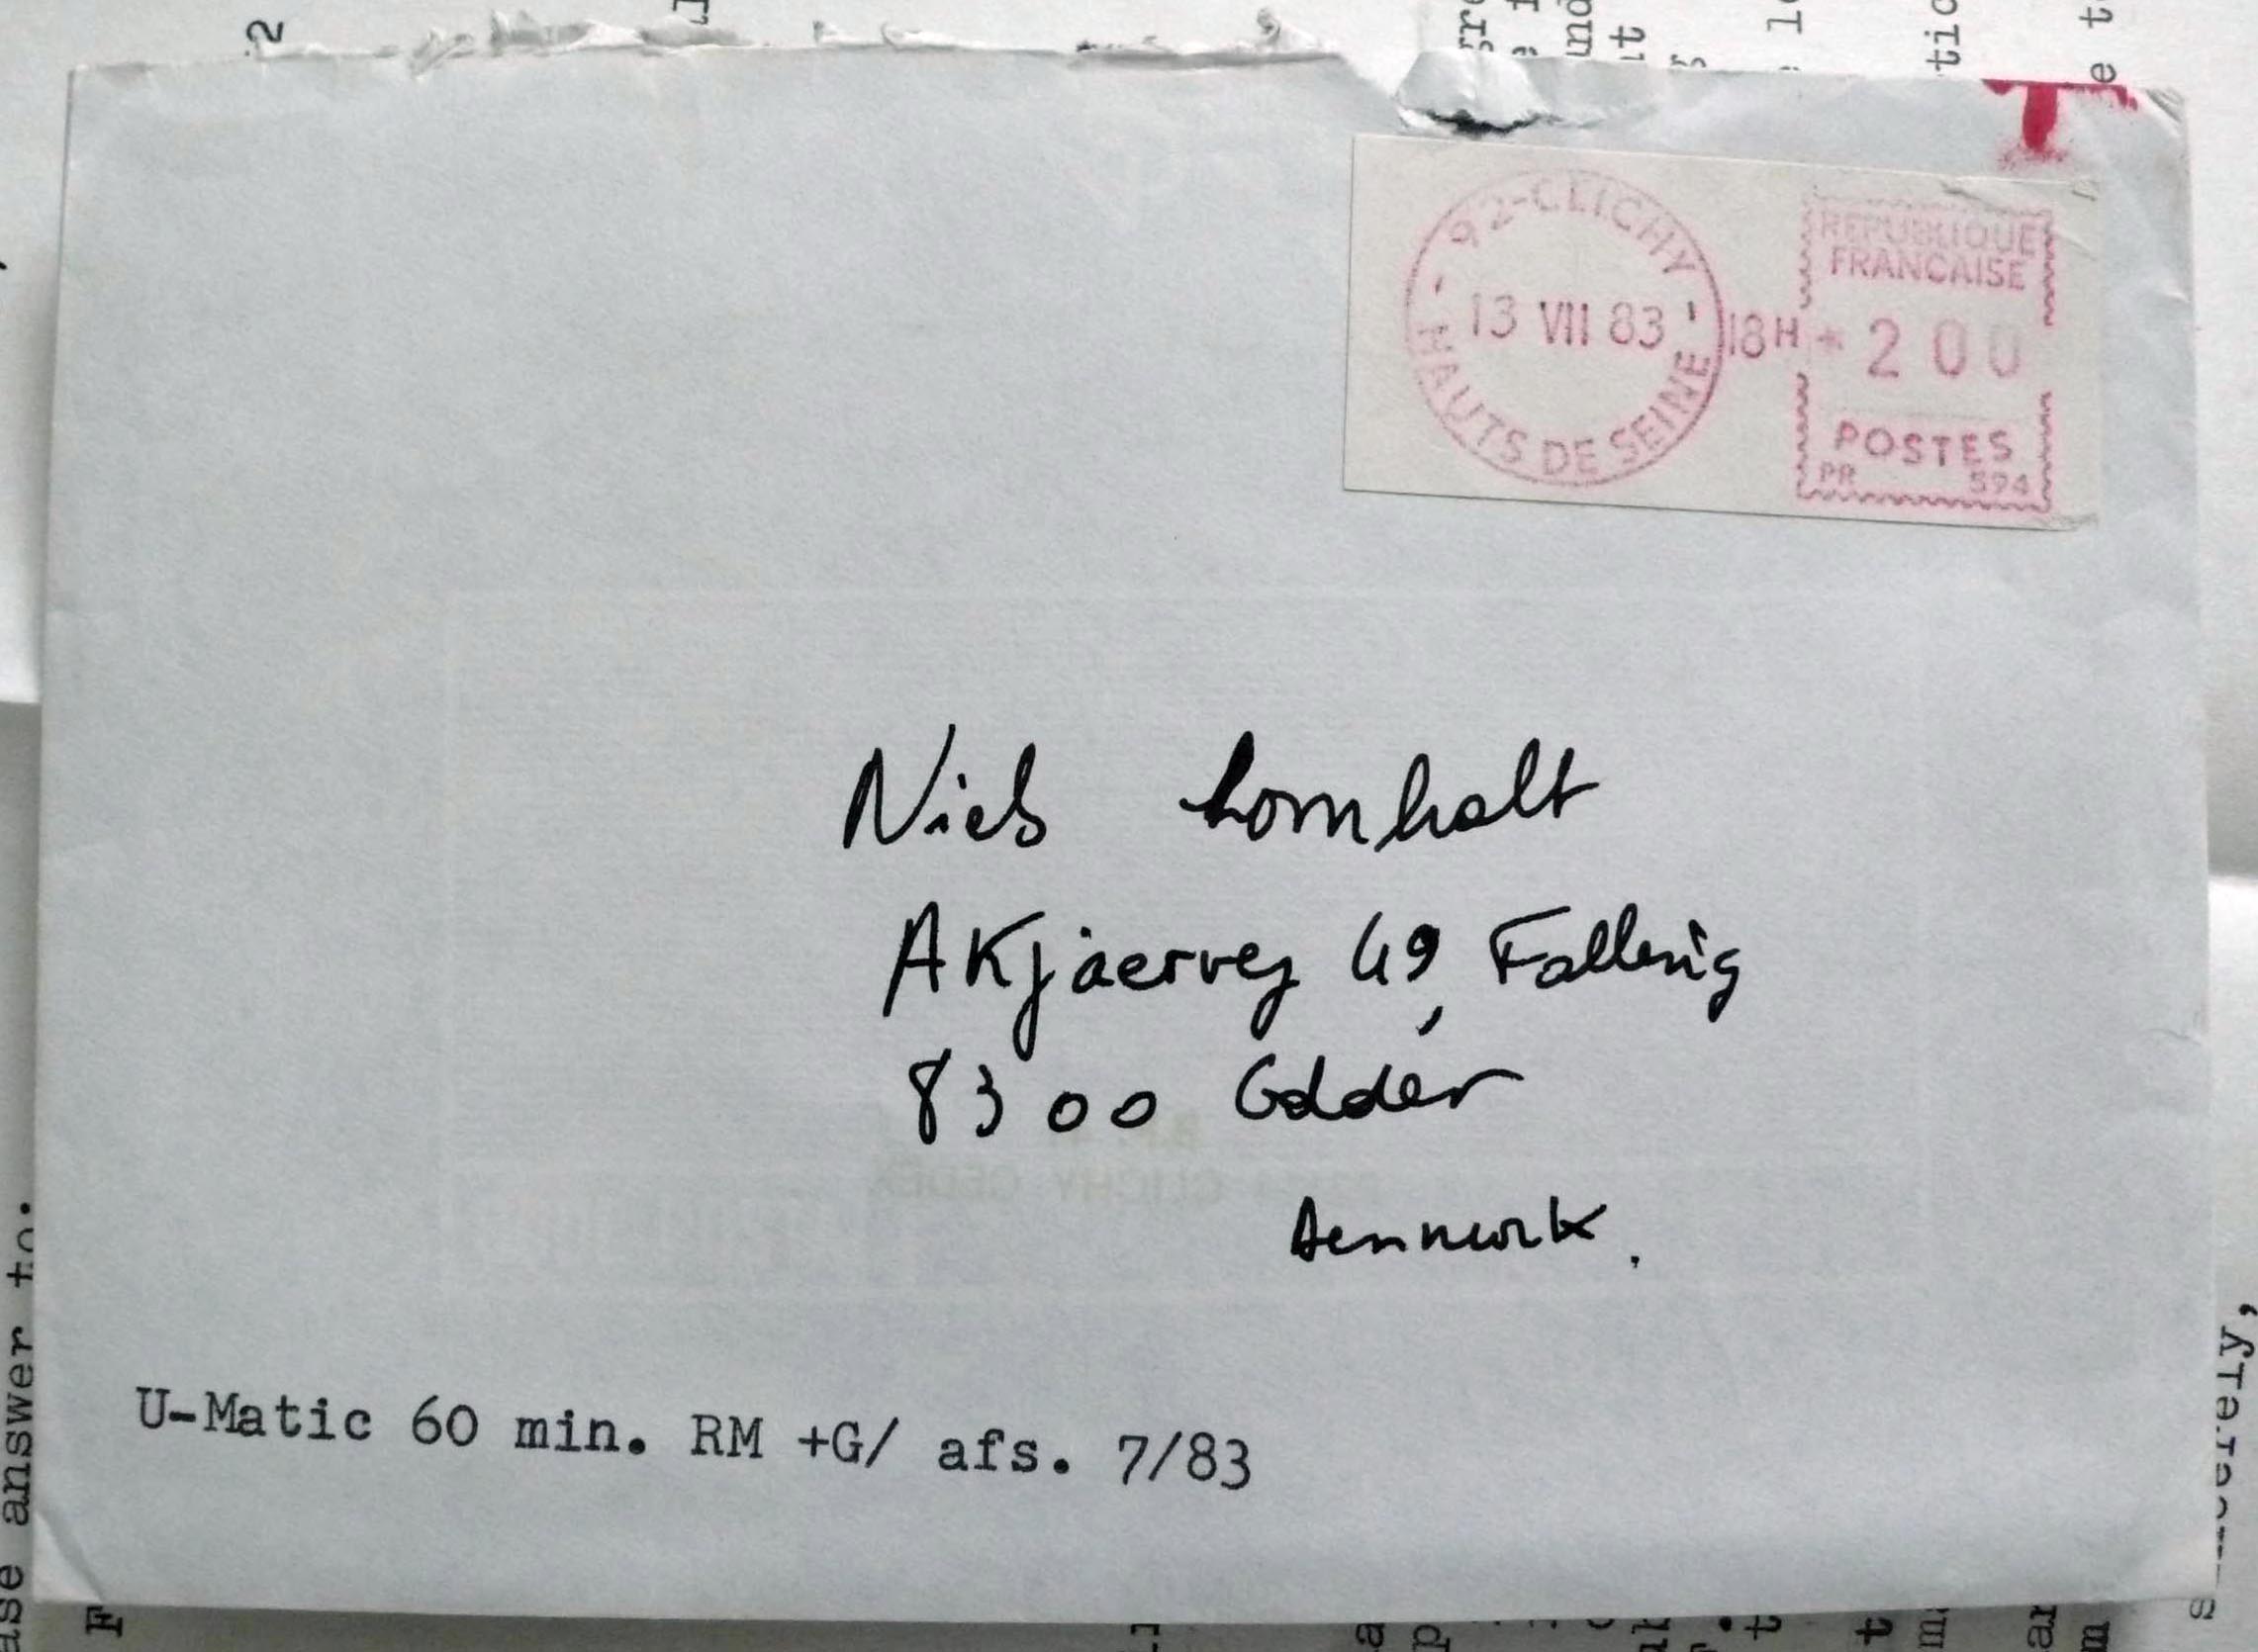 92-CLICHY
13 VII 83
HAUTS DE SEINE
18H
REPUBLIQUE
FRANCAISE
200
POSTES
PR 594
T
Niels Lomholt
AKjaervej 49, Falling
8300 Odder
Denmark.
CLICHY CEDEX
U-Matic 60 min. RM +G/ afs. 7/83
answer to: